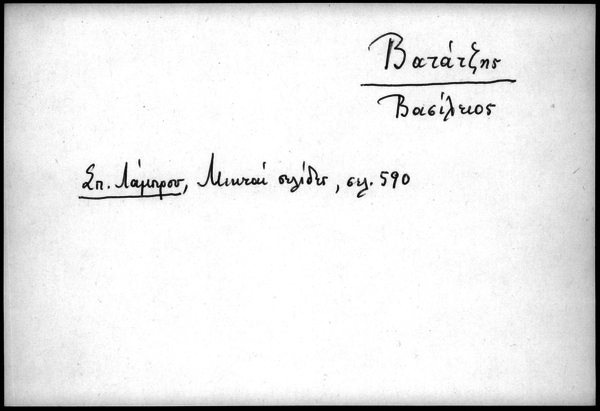 Βατάτζης
Βασίλειος
Σπ. Λάμπρου, Μικταί σελίδες, σελ. 590